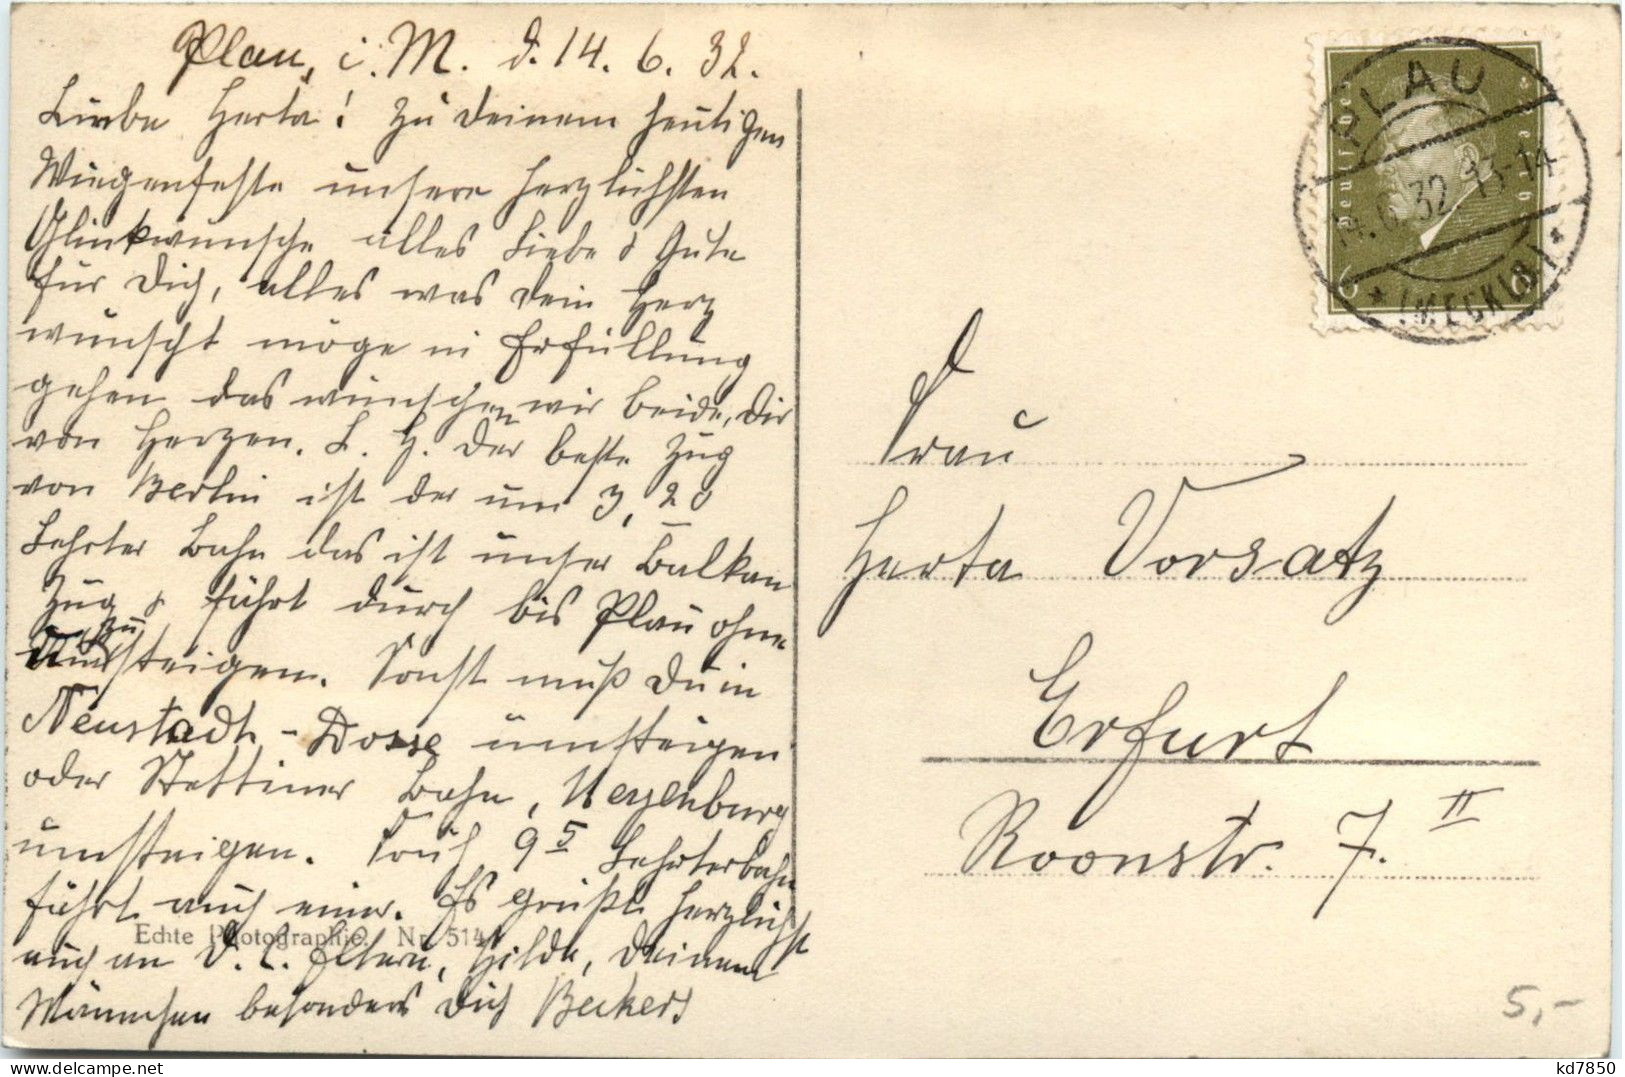 Plau, i. M. d. 14. 6. 32.
Liebe Herta! Zu Deinem heutigen
Wiegenfeste unsere herzlichsten
Glückwünsche alles Liebe & Gute
für Dich, alles was Dein Herz
wünscht möge in Erfüllung
gehen das wünschen wir beide, Dir
von Herzen. L. H. Der beste Zug
von Berlin ist der um 3,20
Lehrter Bahn das ist unser Balkan
Zug & fährt durch bis Plau ohne
zu
Umsteigen. Sonst mußt Du in
Neustadt-Dosse umsteigen
oder Stettiner Bahn, Meyenburg
umsteigen. Früh 9 5 Lehrterbahn
fährt auch einer. Es grüßt herzlichst
auch an D. l. Eltern, Hilde, Deinem
Männchen besonders Dich Beckers
Echte Photographie. Nr. 514
Deutsches Reich
6 6
PLAU
14.6.32.13-14
* (MECKLB) *
Frau
Herta Vorsatz
Erfurt
Roonstr. 7. II
5,-
kd7850